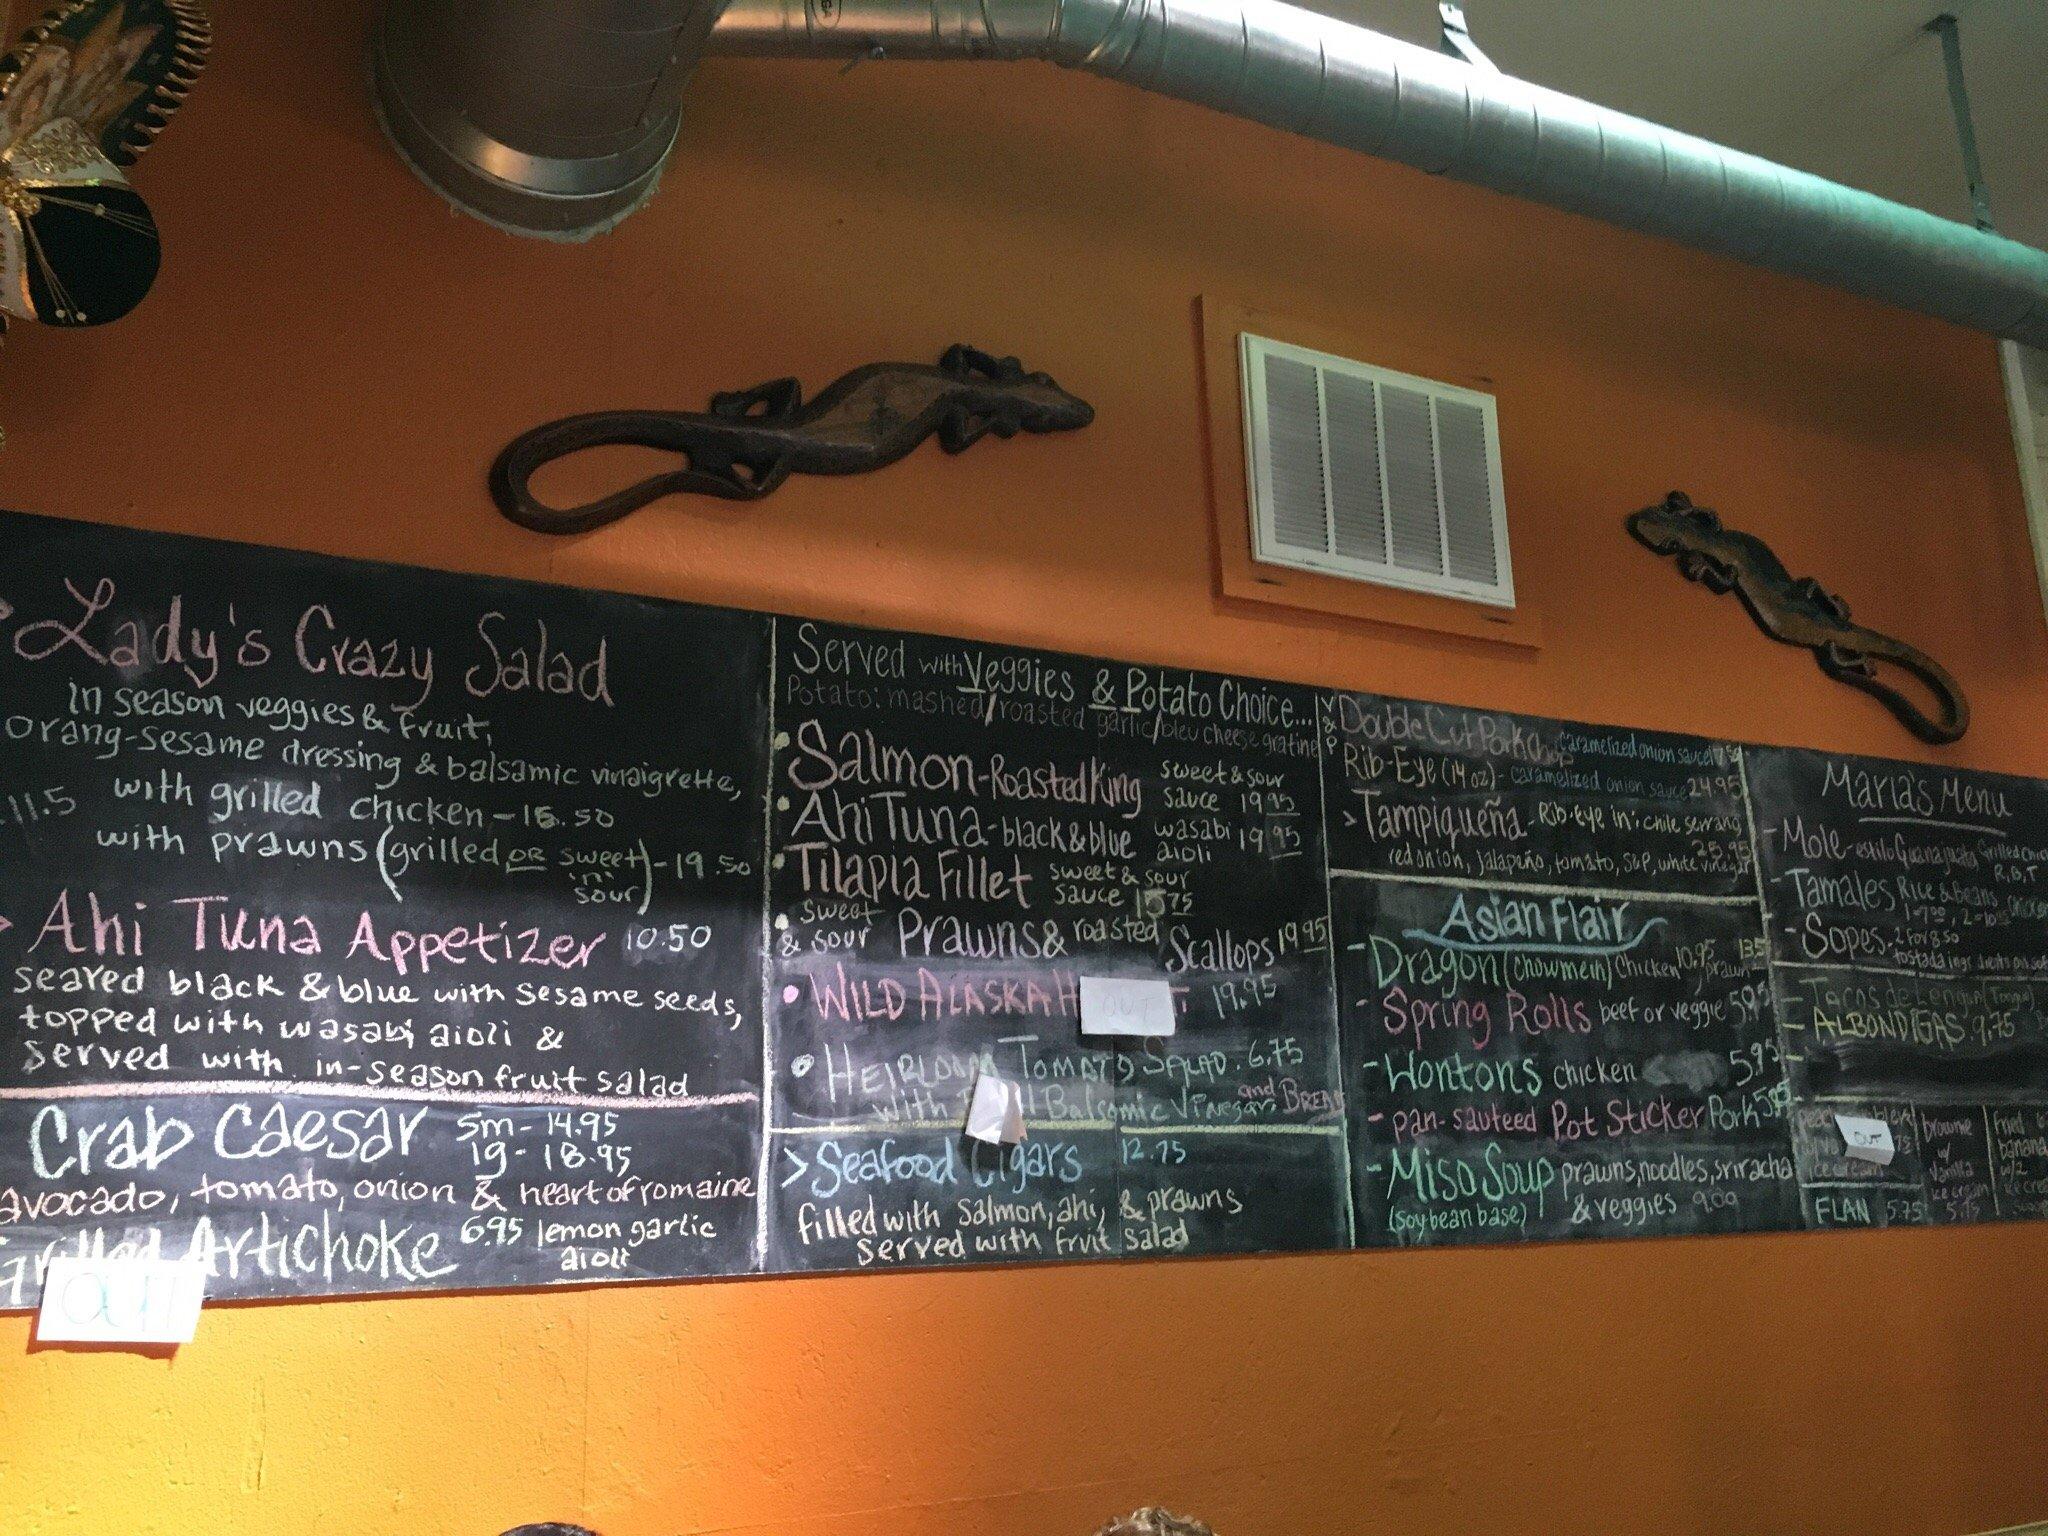 Lady's Crazy Salad
in season veggies & fruit,
orang-sesame dressing & balsamic vinaigrette,
11.5 with grilled chicken - 15.50
with prawns (grilled OR sweet 'n' sour) - 19.50
Ahi Tuna Appetizer 10.50
seared black & blue with sesame seeds,
topped with wasabi aioli &
served with in-season fruit salad
Crab Caesar sm - 14.95
lg - 18.95
avocado, tomato, onion & heart of romaine
Grilled Artichoke 6.95 lemon garlic
aioli
OUT
Served with Veggies & Potato Choice...
Potato: mashed/roasted garlic/bleu cheese gratine
Salmon - Roasted King sweet & sour
sauce 19.95
Ahi Tuna - black & blue wasabi 19.95
aioli
Tilapia Fillet sweet & sour
sauce 15.75
sweet & sour Prawns & roasted Scallops 19.95
WILD ALASKA H 19.95
OUT
HEIRLOOM TOMATO SALAD. 6.75
with Balsamic Vinegar and BREAD
> Seafood Cigars 12.75
filled with salmon, ahi, & prawns
served with fruit salad
V & P
Double Cut Pork Chop caramelized onion sauce
Rib-Eye (14 oz) - caramelized onion sauce 24.95
> Tampiqueña - Rib-Eye in: chile serrano,
25.95
red onion, jalapeño, tomato, S&P, white vinegar
Asian Flair
- Dragon (chowmein) chicken 10.95 prawn
- Spring Rolls beef or veggie 5.95
- Wontons chicken 5.95
- pan-sauteed Pot Sticker Pork 5.95
- Miso Soup prawns, noodles, sriracha
(soybean base) & veggies 9.00
Maria's Menu
- Mole - estilo Guanajuato Grilled
R, B, T
- Tamales Rice & Beans
- Sopes. 2 for 8.50
- Tacos de Lengua (Tongue)
- ALBONDIGAS 9.75
OUT
ice cream
FLAN 5.75
brownie
w/
vanilla
ice cream
5.75
fried
banana
w/2